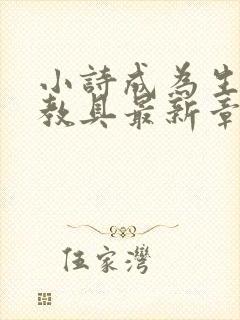 小詩成為生
教具最新章
伍家灣